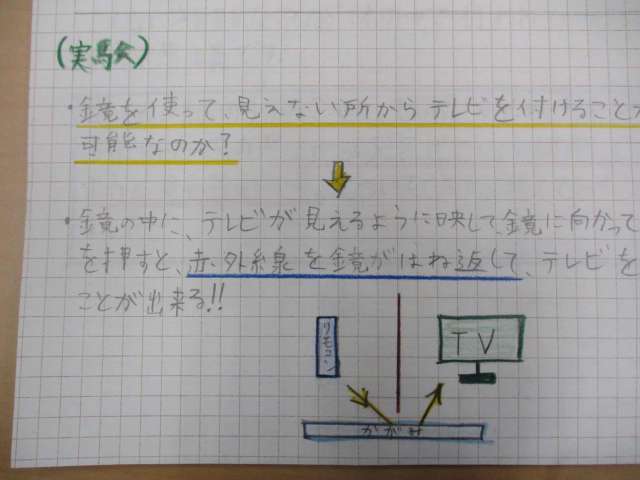 (実験)
・鏡を使って、見えない所からテレビを付けることが
可能なのか?
・鏡の中に、テレビが見えるように映して、鏡に向かって
を押すと、赤外線を鏡がはね返して、テレビを
ことが出来る!!
リモコン
TV
かがみ